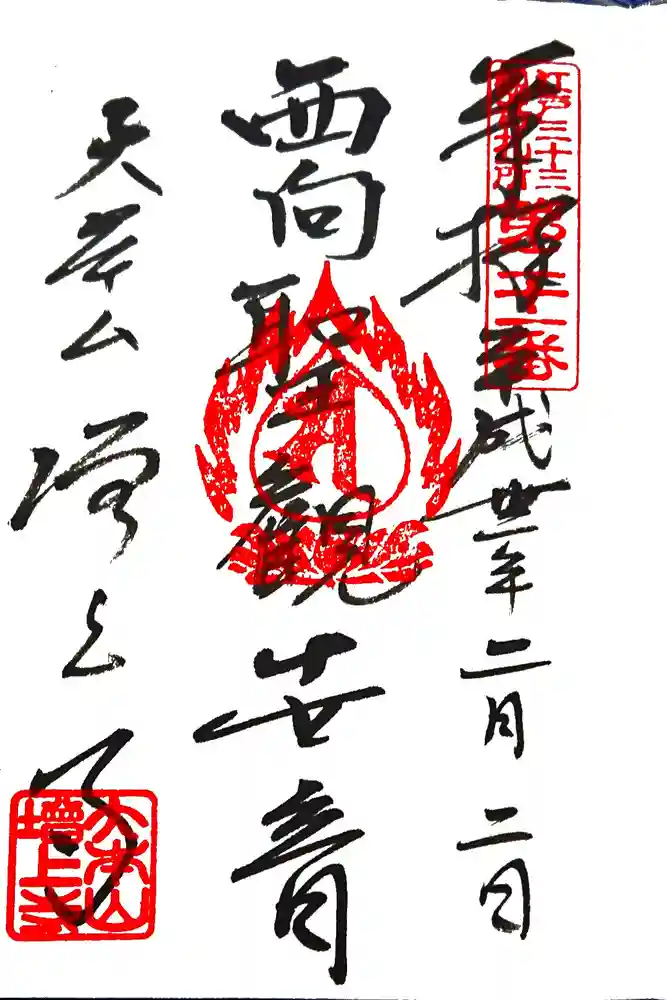 奉拝 平成卅一年二月二日
江戸三十三
観音札所
第二十一番
西向聖観世音
大本山 増上寺
大本山
增上寺